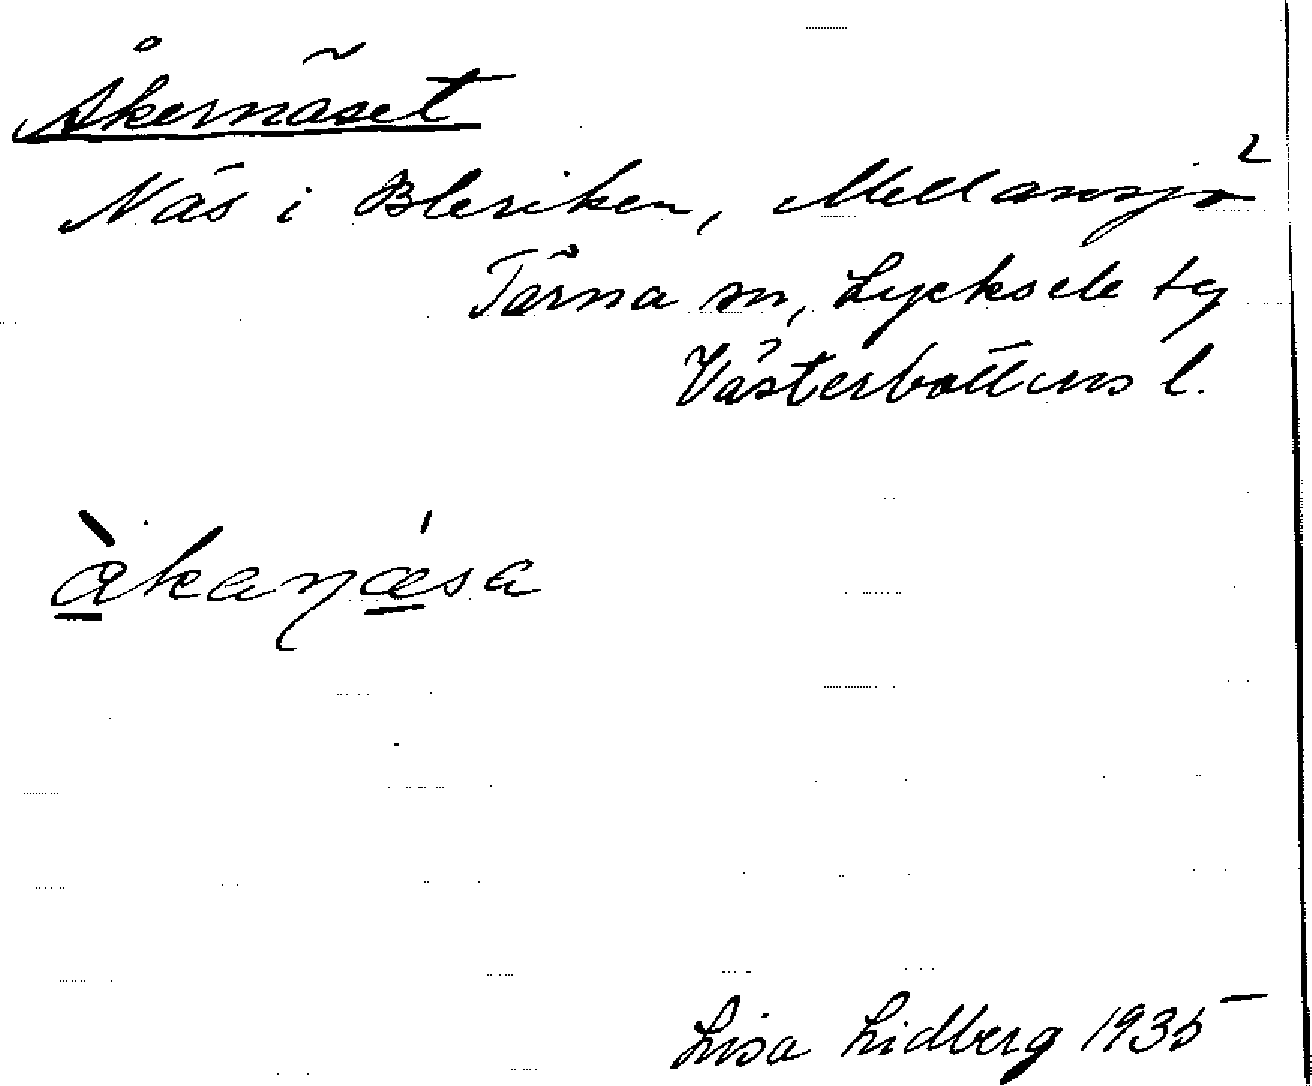 Åkernäset
Näs i Bleriken, Mellansjö
Tärna sn, Lycksele tg
Västerbottens l.
Lisa Lidberg 1935